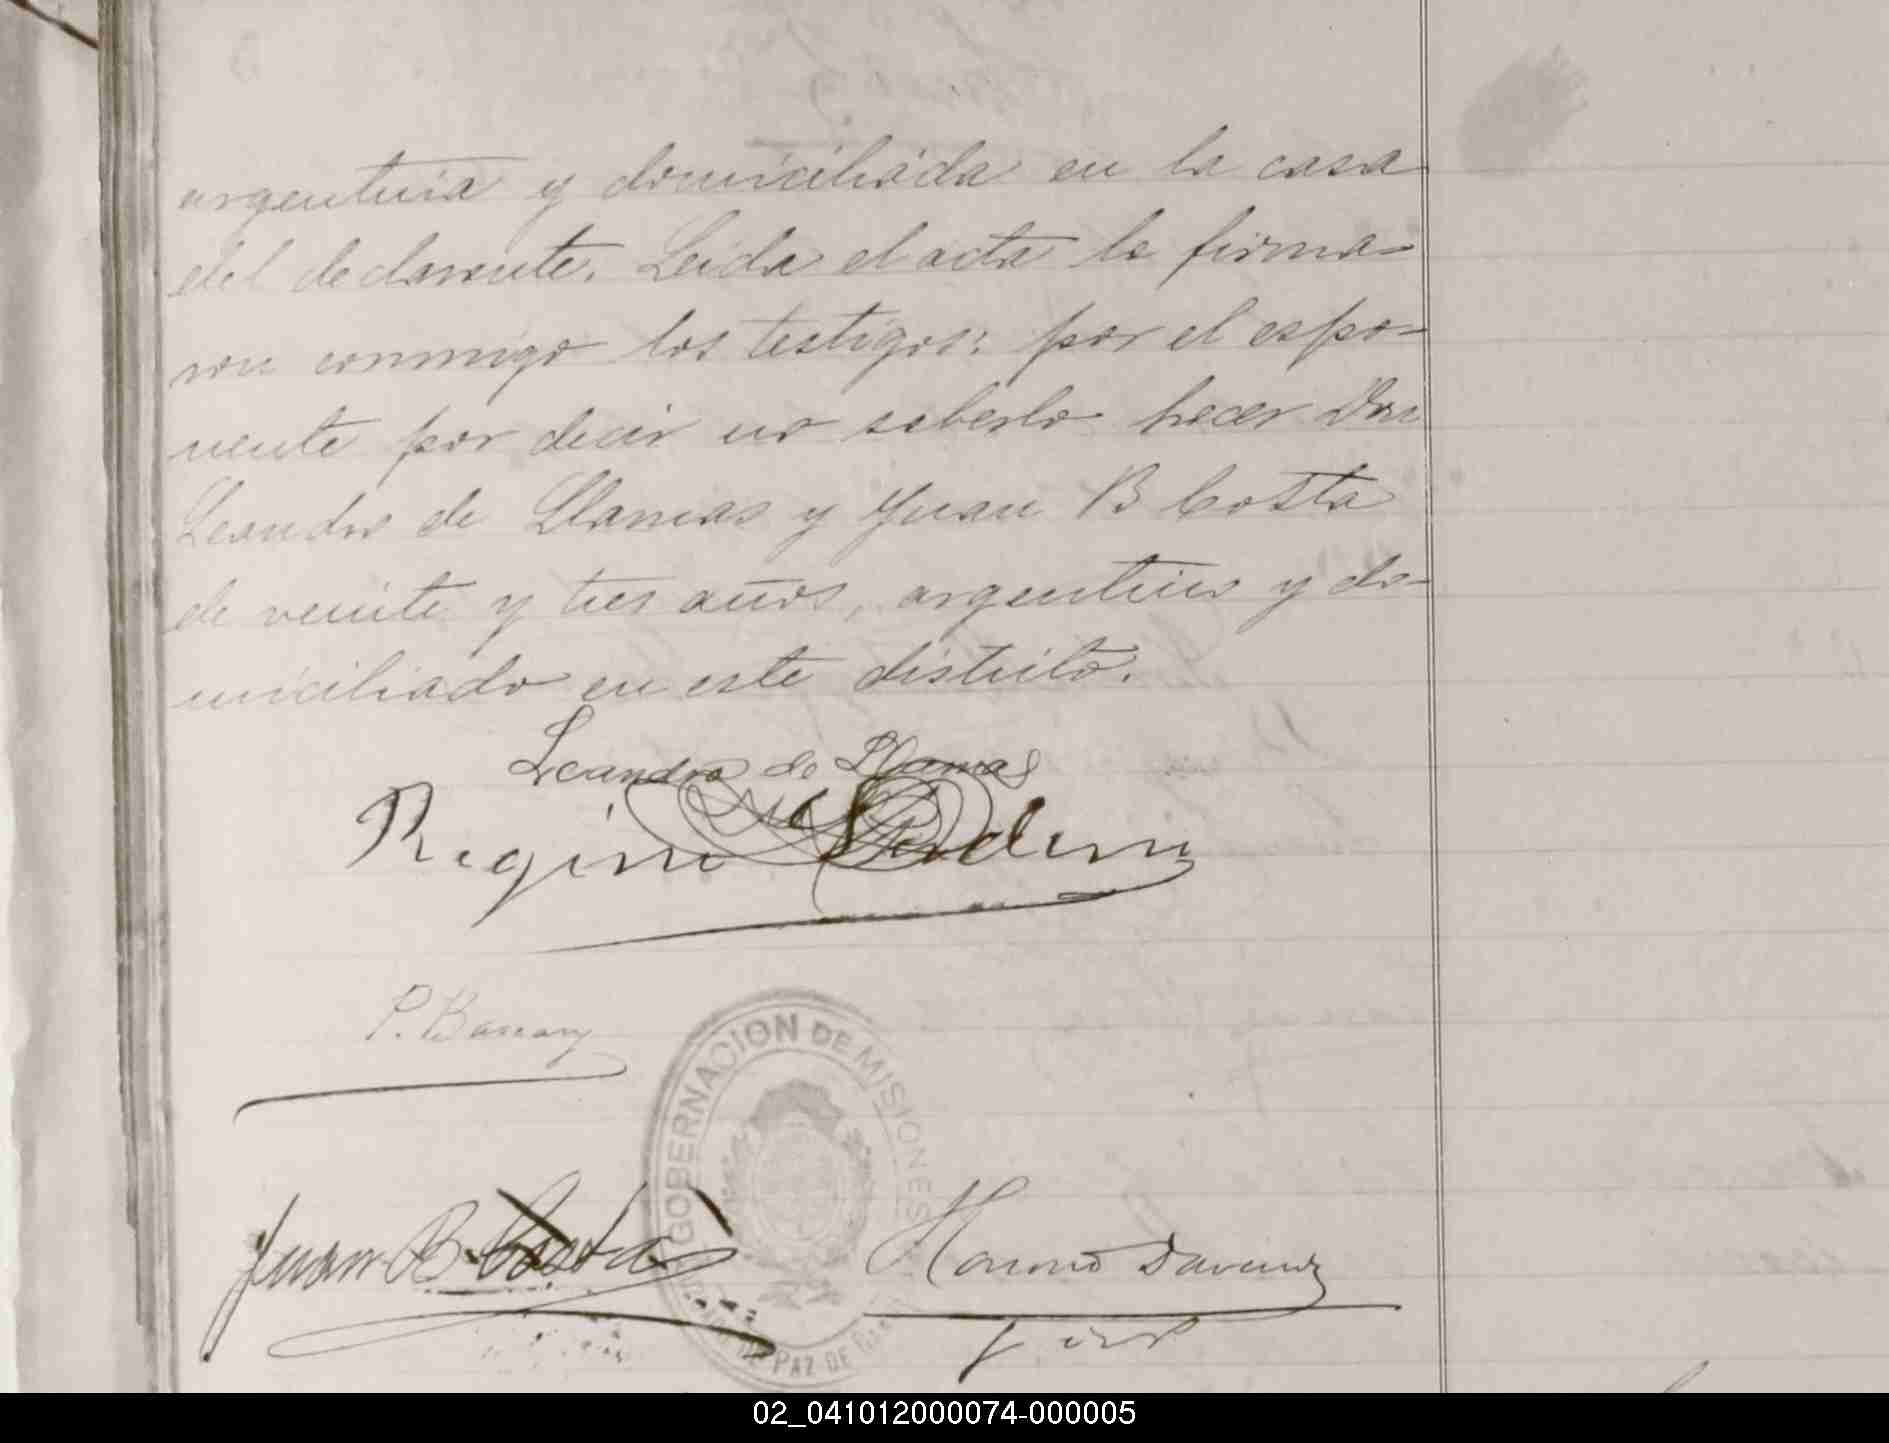 argentina y domiciliada en la casa
del declarante. Leida el acta la firma-
ron conmigo los testigos: por el espo-
nente por decir no saberlo hacer Don
Leandro de Llamas y Juan B Costa
de veinte y tres años, argentino y do-
miciliado en este distrito.
Leandro de Llamas
Regino
P.
GOBERNACION DE MISIONES
PAZ DE
Juan B. Costa
02_041012000074-000005